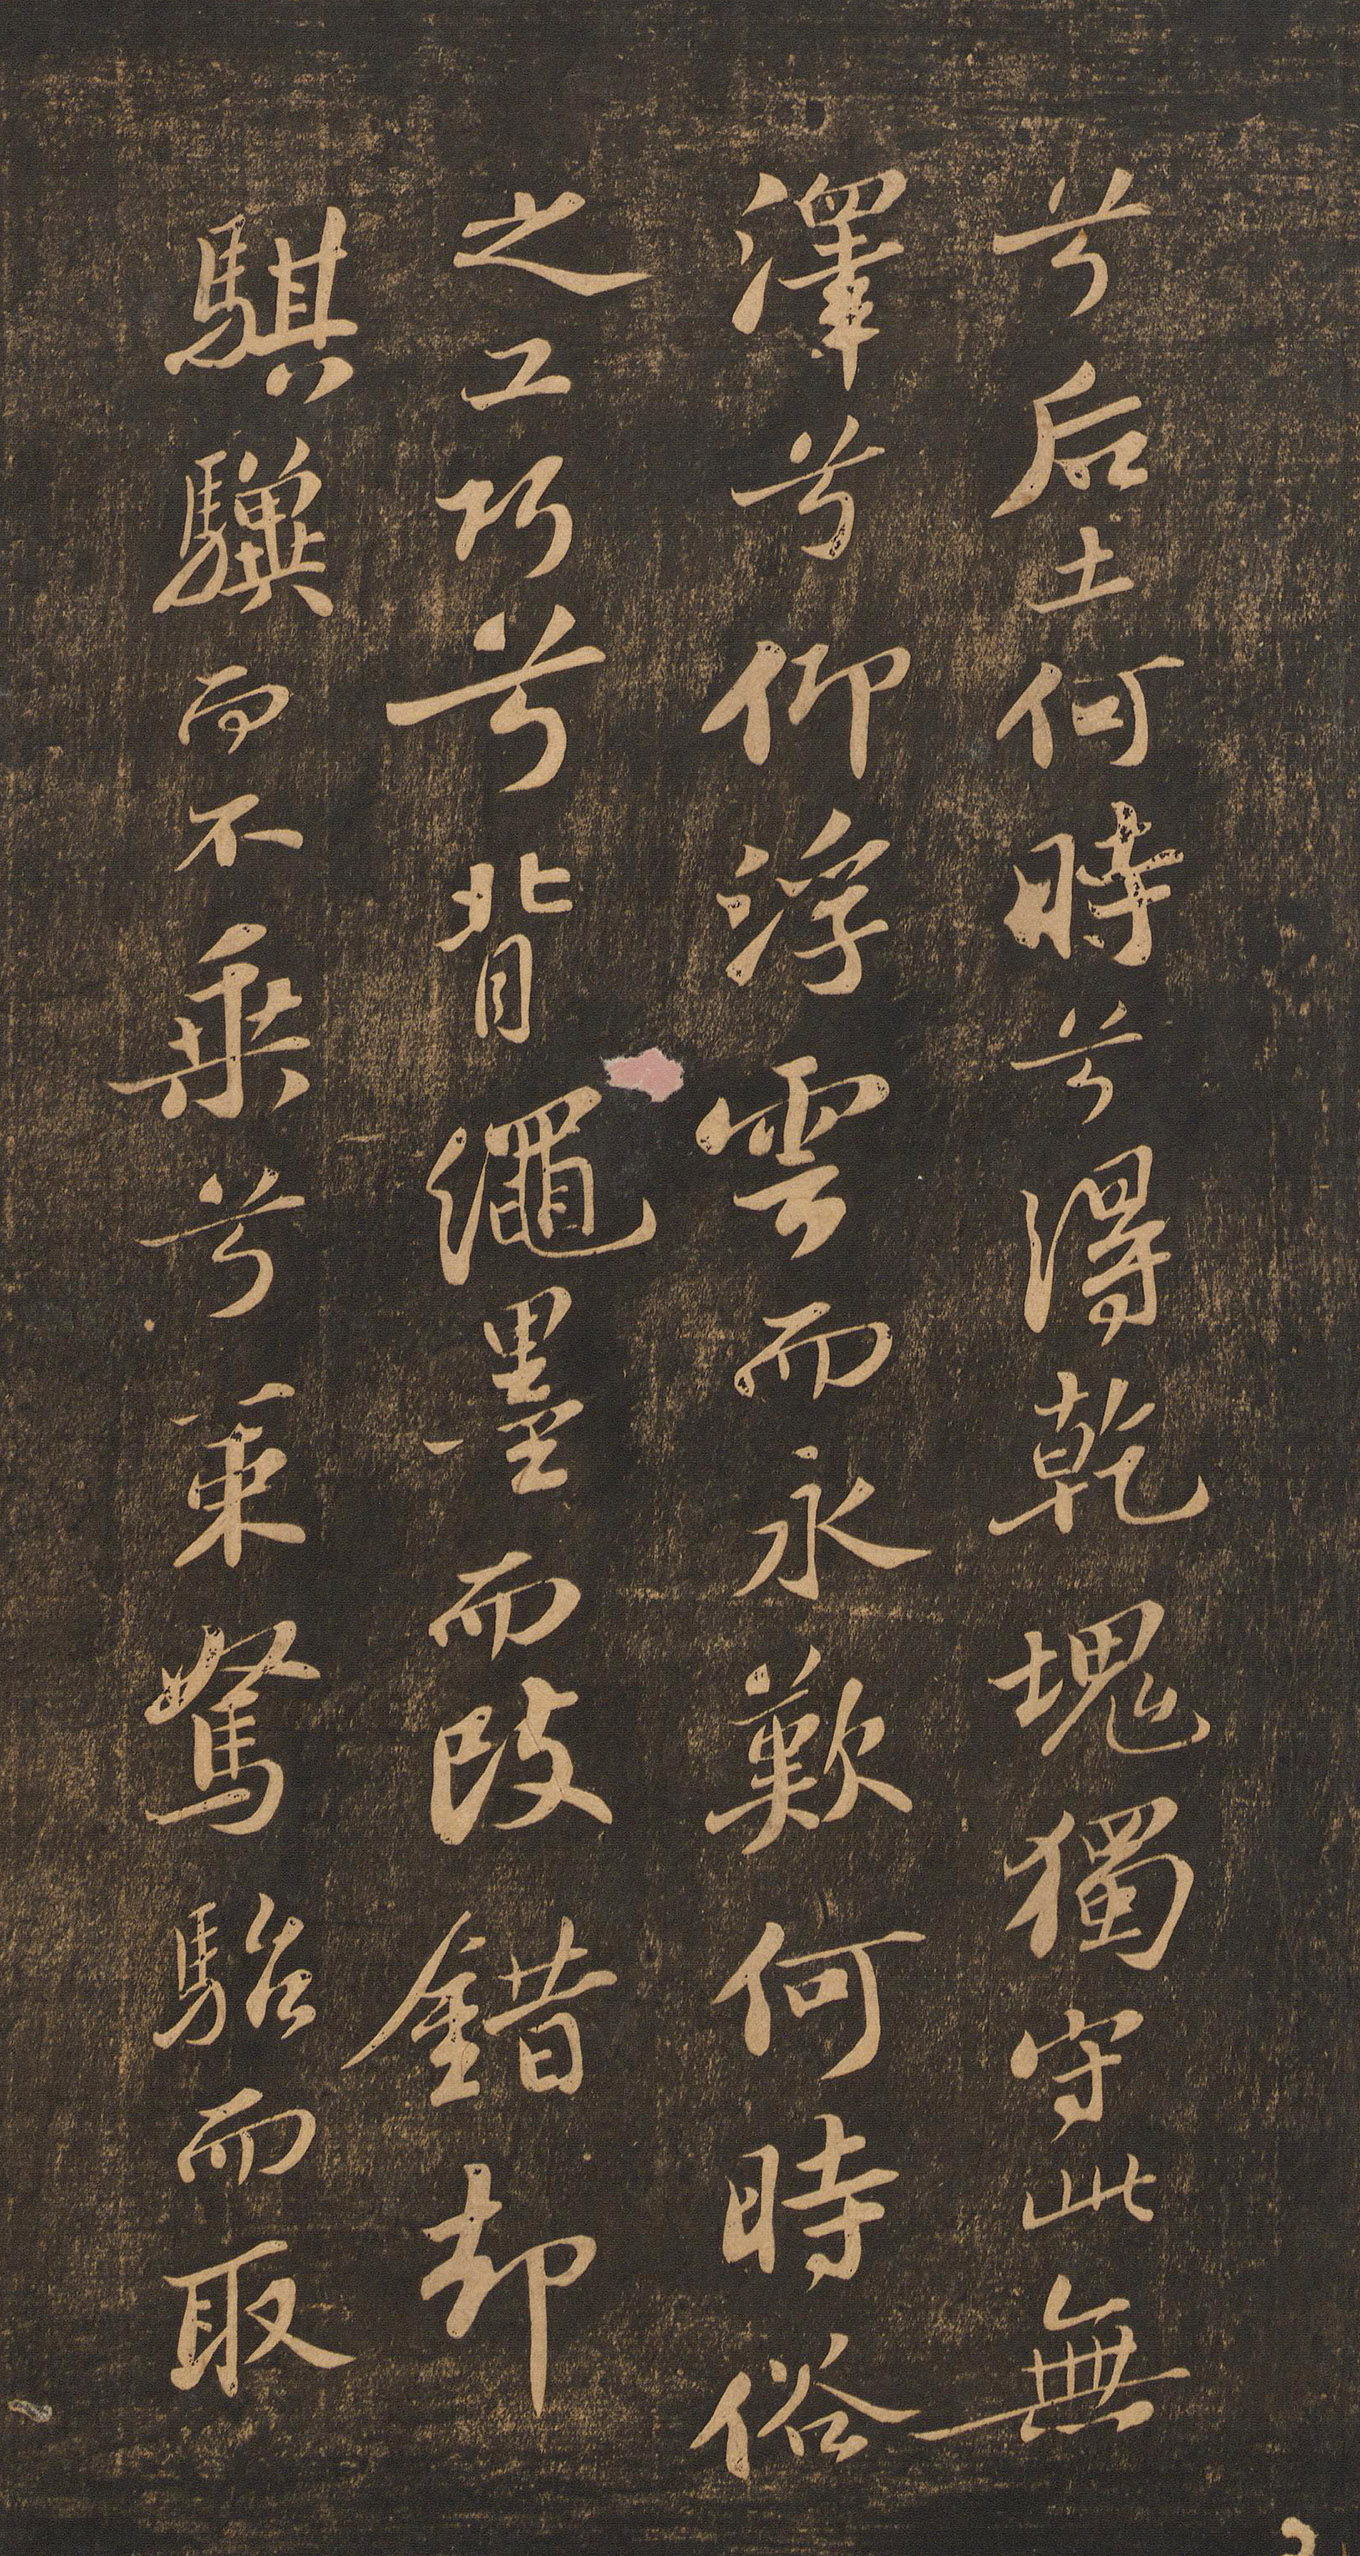 兮后土何時兮得乾塊獨守此無
澤兮仰浮雲而永歎何時俗
之工巧兮背繩墨而改錯却
騏驥而不乘兮策駑駘而取